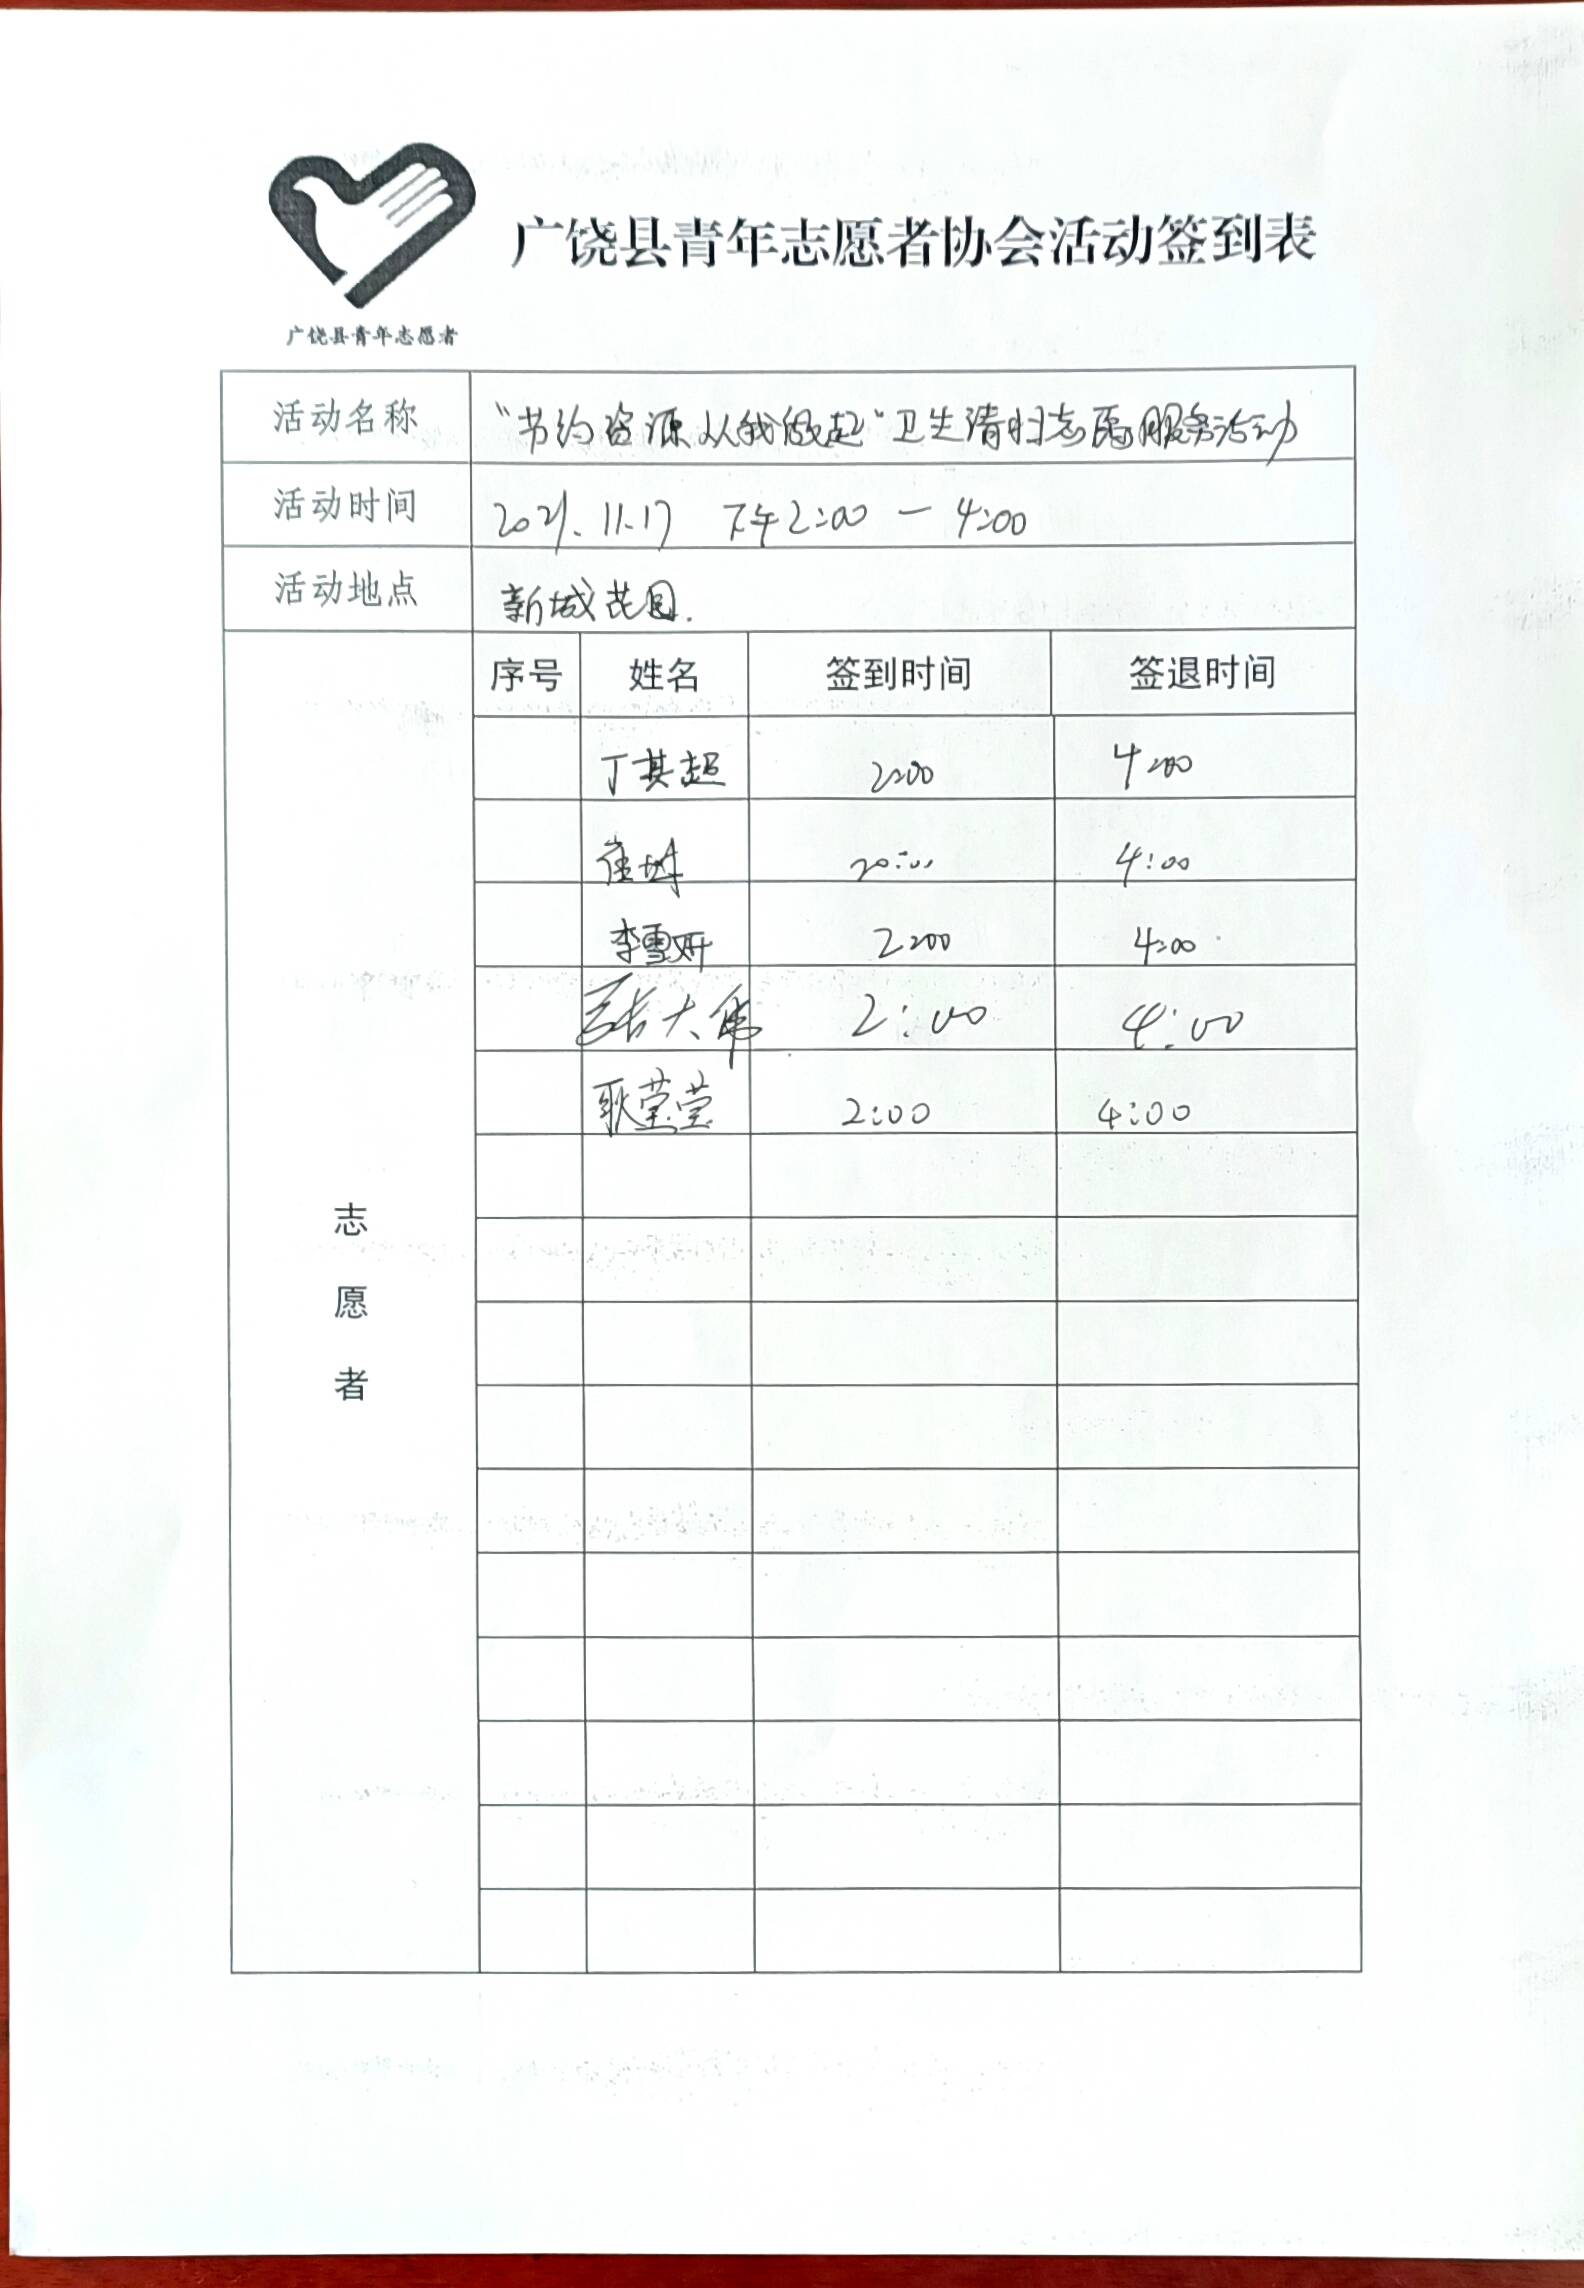 广饶县青年志愿者协会活动签到表
广饶县青年志愿者
活动名称 "节约资源从我做起"卫生清扫志愿服务活动
活动时间 2021.11.17 下午2:00 — 4:00
活动地点 新城花园.
序号 姓名 签到时间 签退时间
丁其超 2:00 4:00
崔树 20:00 4:00
李雪妍 2:00 4:00
张大伟 2:00 4:00
耿莹莹 2:00 4:00
志
愿
者